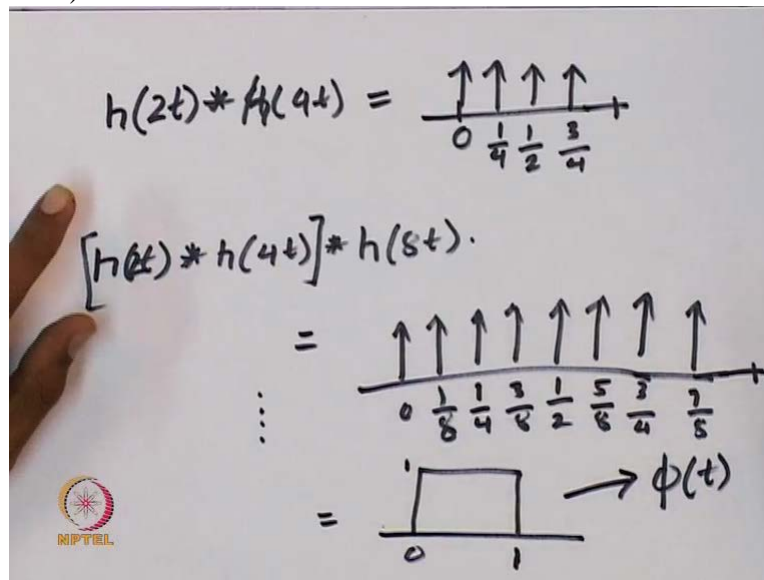 h(2t) * h(4t) =
0 1/4 1/2 3/4
[h(2t) * h(4t)] * h(8t).
=
0 1/8 1/4 3/8 1/2 5/8 3/4 7/8
⋮
= 1 → φ(t)
0 1
NPTEL